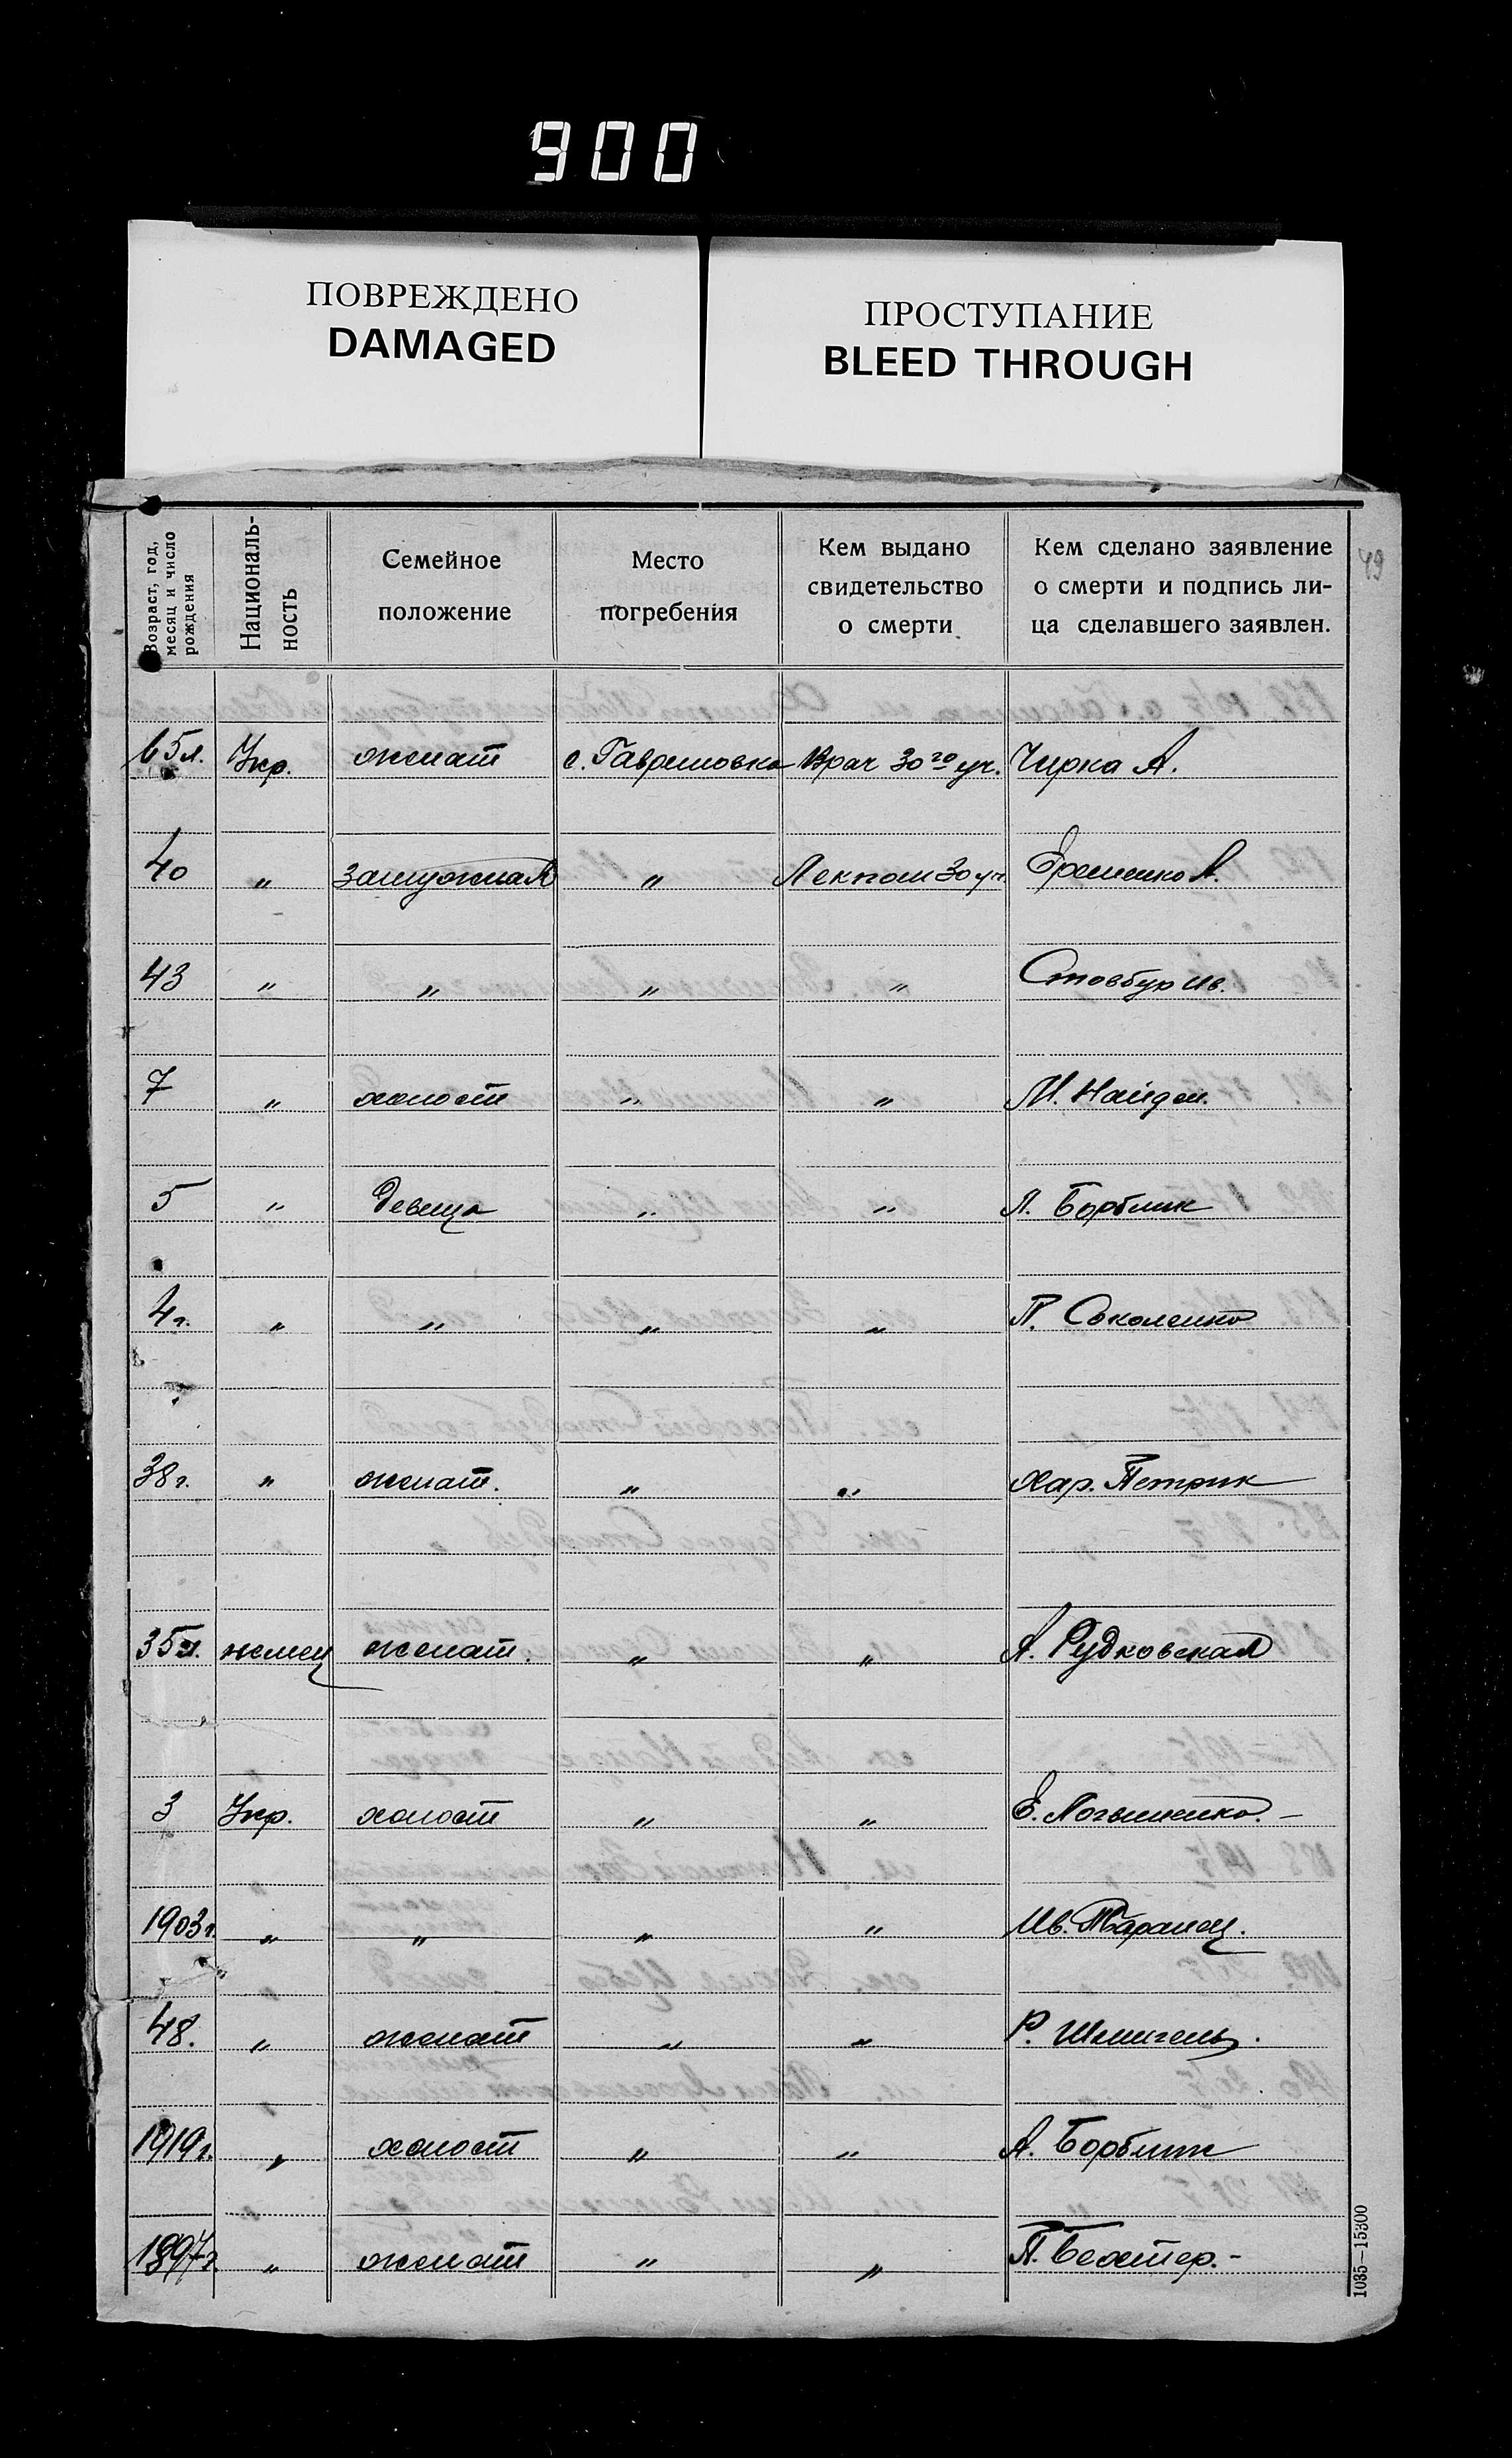 900
ПОВРЕЖДЕНО
DAMAGED
ПРОСТУПАНИЕ
BLEED THROUGH
49
Возраст, год, месяц и число рождения
Националь-ность
Семейное положение
Место погребения
Кем выдано свидетельство о смерти
Кем сделано заявление о смерти и подпись ли-ца сделавшего заявлен.
65л. Укр. женат с. Гавриловка Врач 30го уч. Чирка А.
40 " замужная " Лекпом 30 уч. Еременко А.
43 " " " " Стовбур Ив.
7 " холост " " М. Найдем.
5 " девица " " Л. Борблик
4г. " " " " П. Соколенко
38г. " женат. " " Хар. Петрик
35л. немец женат. " " А. Рудковская
3 Укр. холост " " Е. Логвиненко.-
1903г. " " " " Ив. Таранец.
48. " женат " " Р. Шмигель.
1919г. " холост " " А. Борблик
1897г. " женат " " П. Бехтер.-
1035—15300